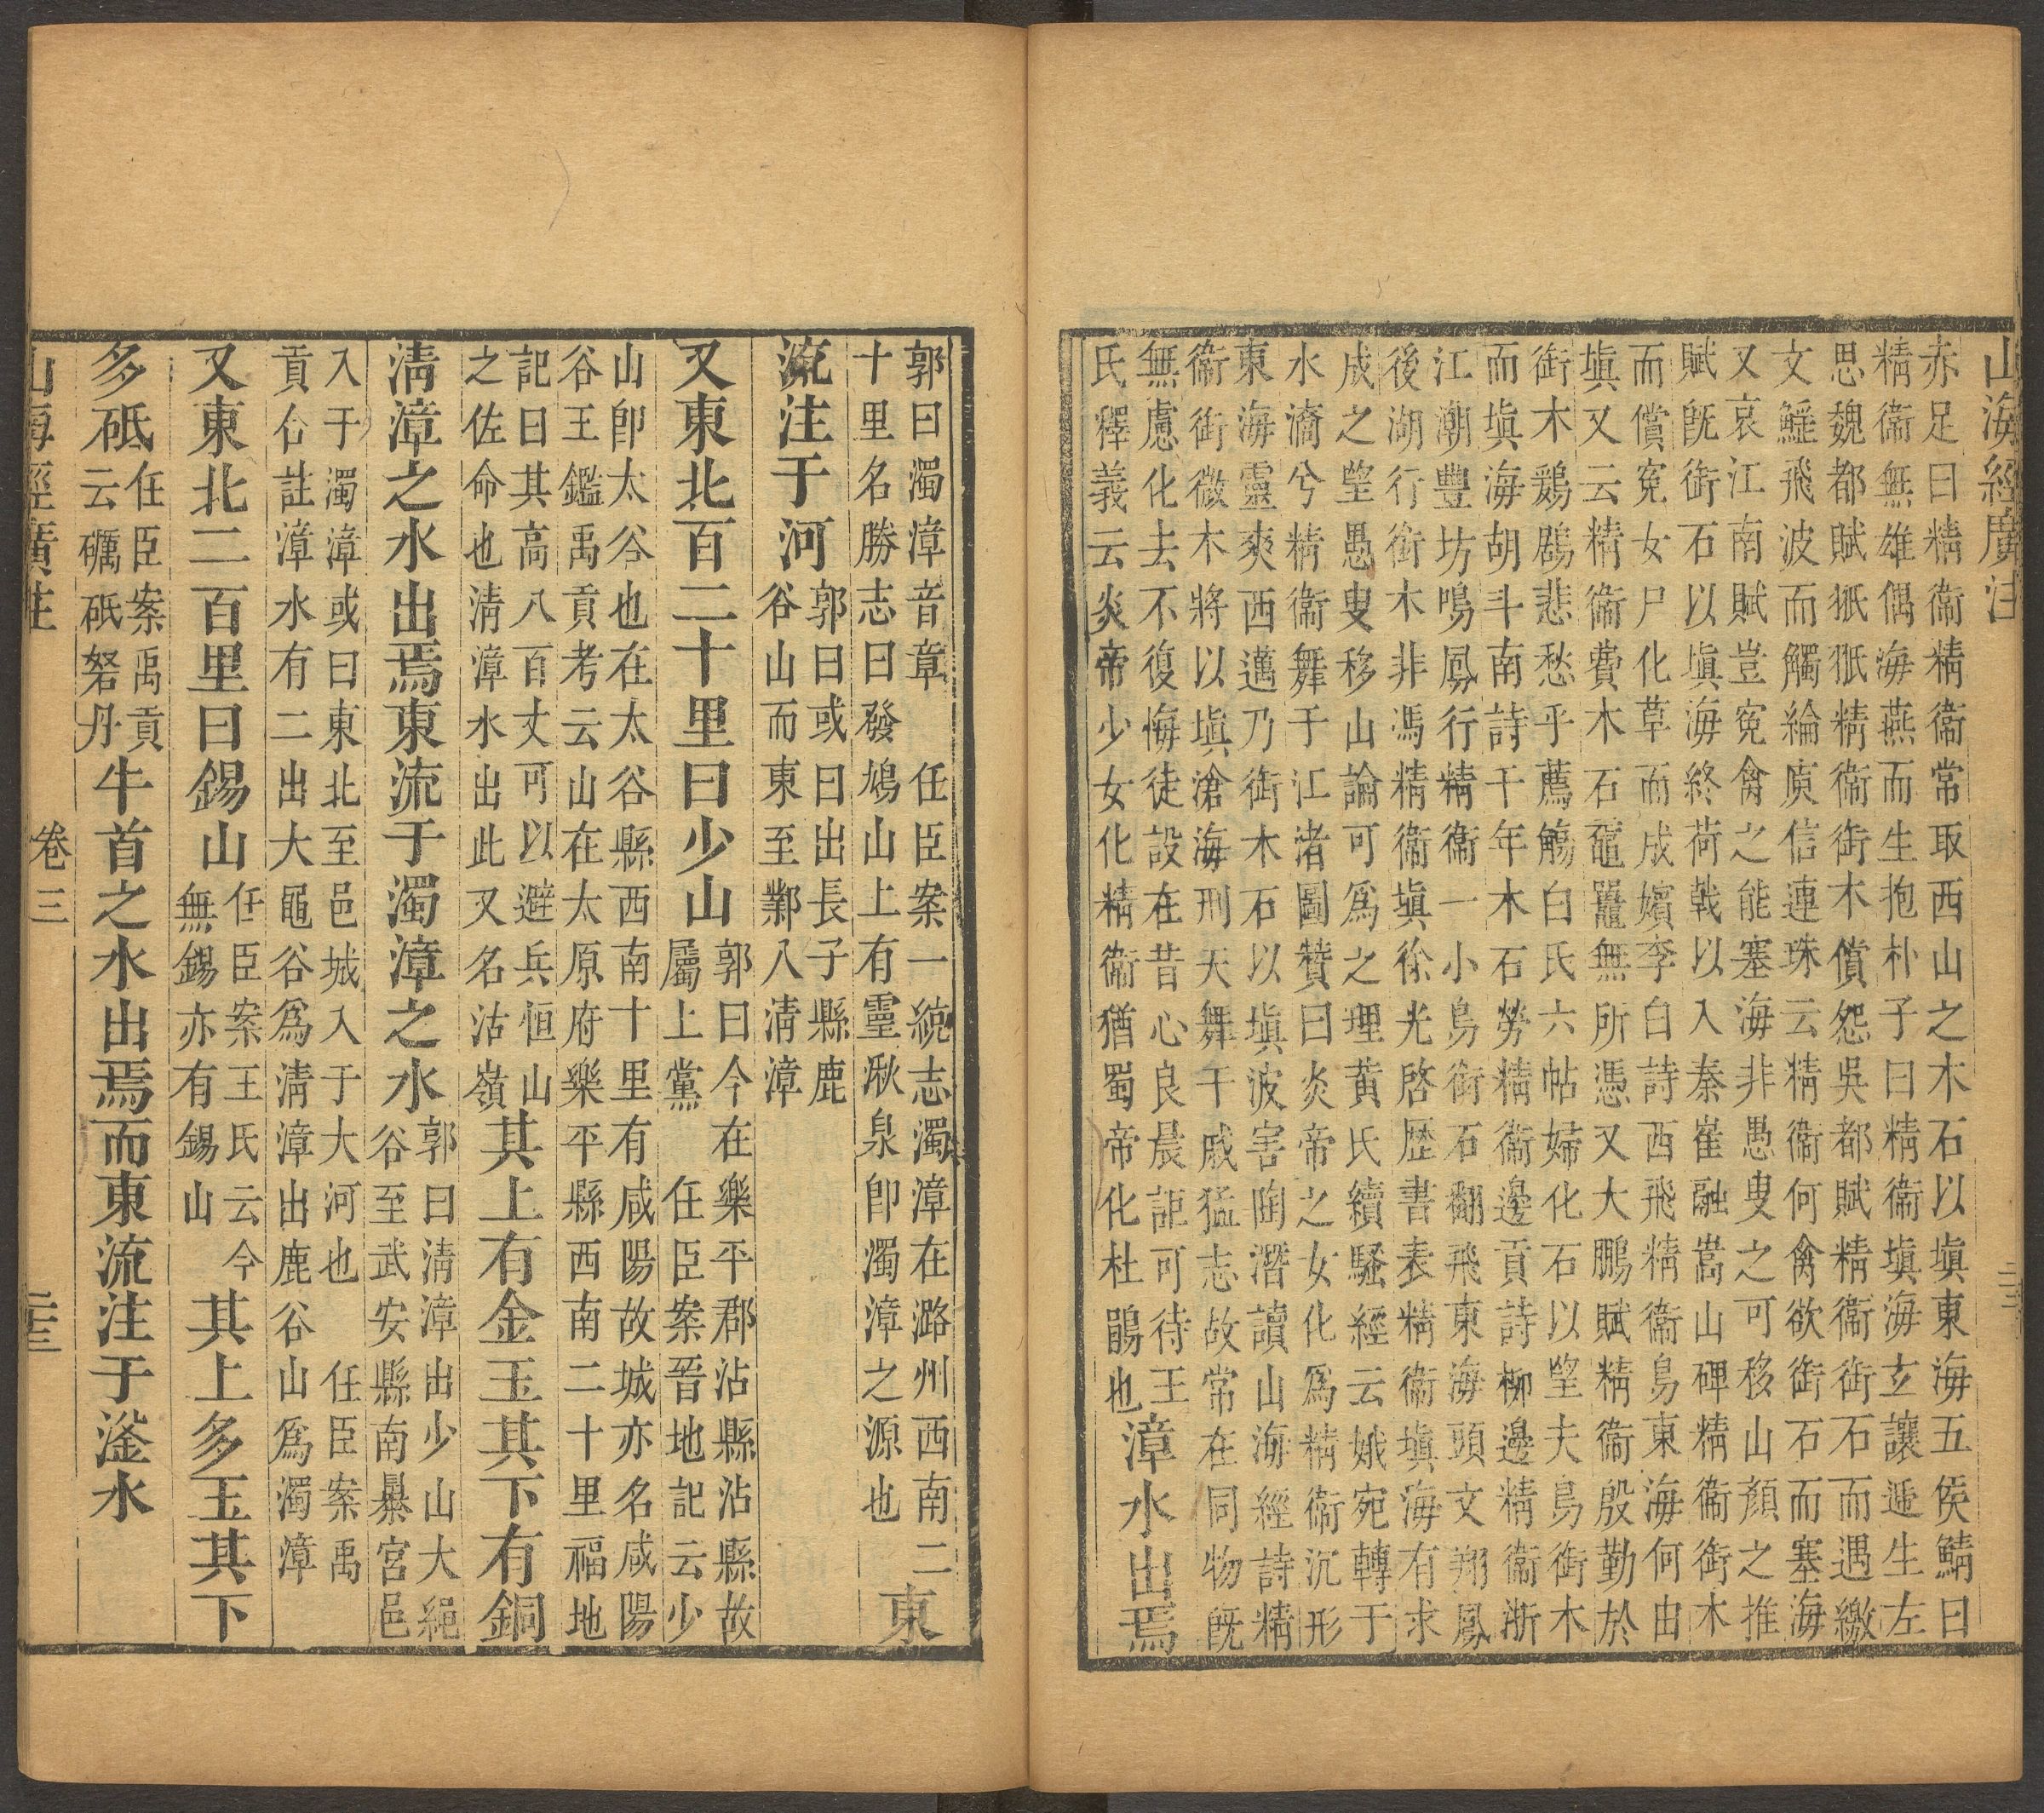 山海經廣注
赤足曰精衞精衞常取西山之木石以塡東海五侯鯖曰
精衞無雄偶海燕而生抱朴子曰精衞塡海玄讓遞生左
思魏都賦㹝㹝精衞銜木償怨吳都賦精衞銜石而遇繳
文鰩飛波而觸綸庾信連珠云精衞何禽欲銜石而塞海
又哀江南賦豈寃禽之能塞海非愚叟之可移山顏之推
賦旣銜石以塡海終荷戟以入秦崔融嵩山碑精衞銜木
而償寃女尸化草而成嬪李白詩西飛精衞鳥東海何由
塡又云精衞費木石黿鼉無所憑又大鵬賦精衞殷勤於
銜木鶢鶋悲愁乎薦觴白氏六帖婦化石以望夫鳥銜木
而塡海胡斗南詩千年木石勞精衞邊貢詩柳邊精衞浙
江潮豐坊鳴鳳行精衞一小鳥銜石翻飛東海頭文翔鳳
後湖行銜木非馮精衞塡徐光啓歷書表精衞塡海有求
成之望愚叟移山論可爲之理黃氏續騷經云娥宛轉于
水濆兮精衞舞于江渚圖贊曰炎帝之女化爲精衞沉形
東海靈爽西邁乃銜木石以塡波害陶潛讀山海經詩精
衞銜微木將以塡滄海刑天舞干戚猛志故常在同物旣
無慮化去不復悔徒設在昔心良晨詎可待王
氏釋義云炎帝少女化精衞猶蜀帝化杜鵑也漳水出焉
郭曰濁漳音章　任臣案一統志濁漳在潞州西南二
十里名勝志曰發鳩山上有靈湫泉卽濁漳之源也東
流注于河郭曰或曰出長子縣鹿
谷山而東至鄴入淸漳
又東北百二十里曰少山郭曰今在樂平郡沾縣沾縣故
屬上黨　任臣案晉地記云少
山卽太谷也在太谷縣西南十里有咸陽故城亦名咸陽
谷王鑑禹貢考云山在太原府樂平縣西南二十里福地
記曰其高八百丈可以避兵恒山
之佐命也淸漳水出此又名沾嶺其上有金玉其下有銅
淸漳之水出焉東流于濁漳之水郭曰淸漳出少山大繩
谷至武安縣南暴宮邑
入于濁漳或曰東北至邑城入于大河也　任臣案禹
貢合註漳水有二出大黽谷爲淸漳出鹿谷山爲濁漳
又東北二百里曰錫山任臣案王氏云今
無錫亦有錫山其上多玉其下
多砥任臣案禹貢
云礪砥砮丹牛首之水出焉而東流注于滏水
山海經廣注　卷三　二十三